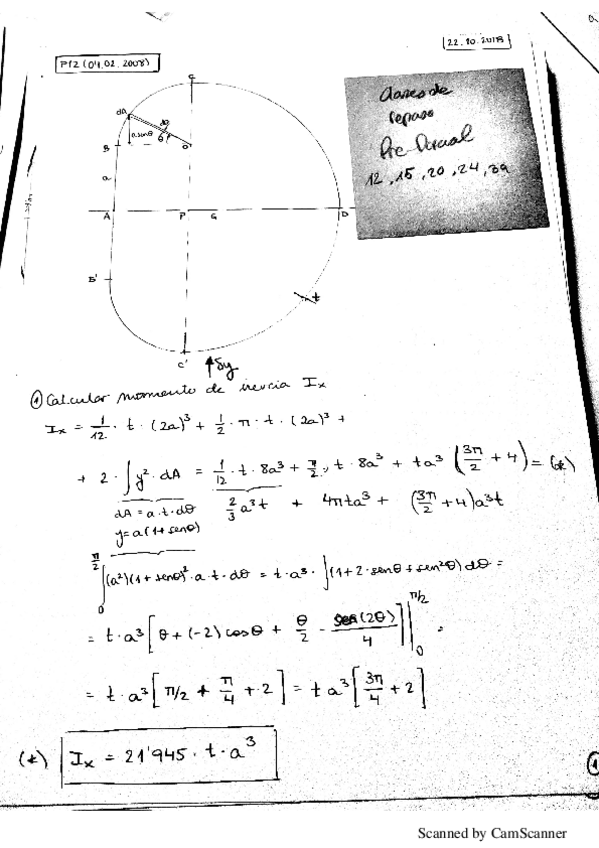 22.10.2018
P12 (04.02.2008)
Clases de
repaso
Pre-Parcial
12, 15, 20, 24, 39
C
dA
dθ
a senθ
θ
B
O
a
A
P
G
D
B'
t
C'
Sy
① Calcular momento de inercia Ix
Ix = 1/12 · t · (2a)³ + 1/2 · π · t · (2a)³ +
+ 2 · ∫ y² · dA = 1/12 · t · 8a³ + π/2 · t · 8a³ + ta³ (3π/2 + 4) = (*)
dA = a · t · dθ
2/3 a³t + 4πta³ + (3π/2 + 4) a³t
y = a(1 + senθ)
∫₀^π/2 (a²)(1 + senθ)² · a · t · dθ = t · a³ · ∫(1 + 2 · senθ + sen²θ) dθ =
= t · a³ [θ + (-2) cosθ + θ/2 - sen(2θ)/4]|₀^π/2 =
= t · a³ [π/2 + π/4 + 2] = t a³ [3π/4 + 2]
(*) Ix = 21'945 · t · a³
1
Scanned by CamScanner